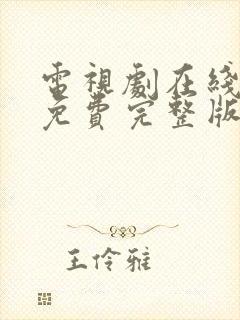 電視劇在綫
免費完整版
王伶雅